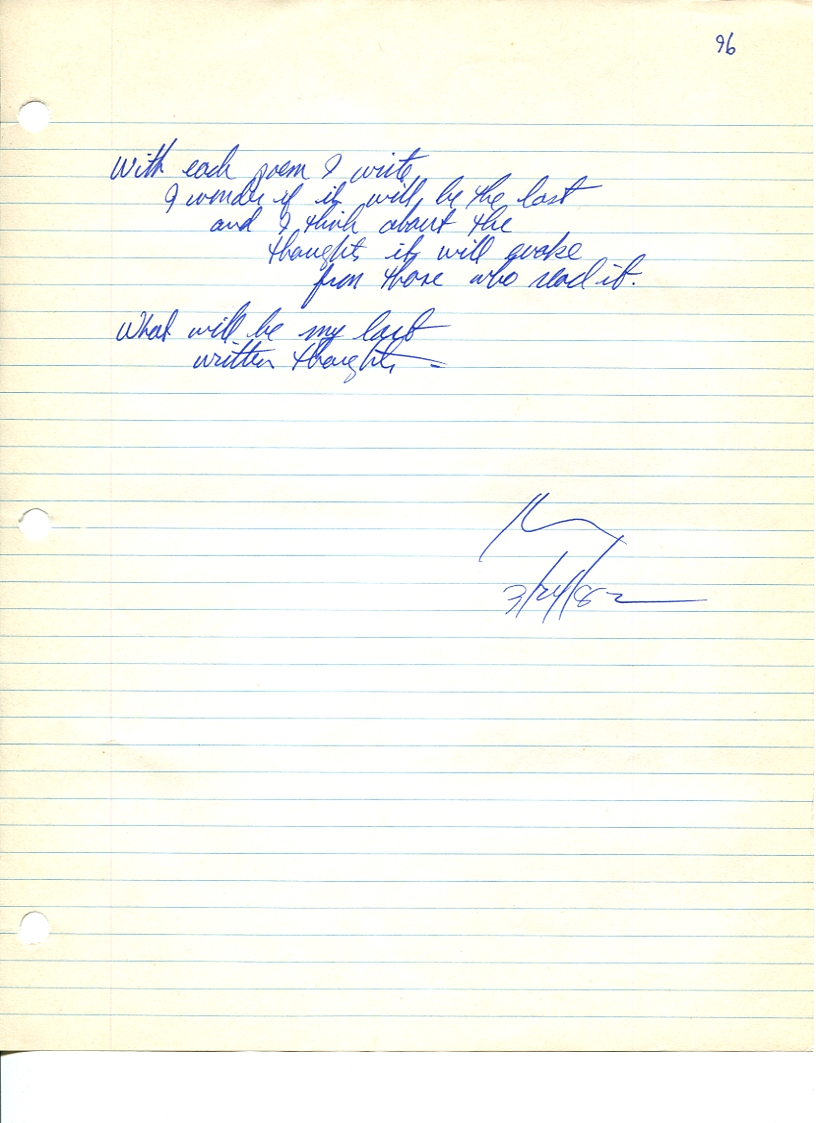 96
With each poem I write
I wonder if it will be the last
and I think about the
thoughts it will evoke
from those who read it.
What will be my last
written thoughts —
3/24/82